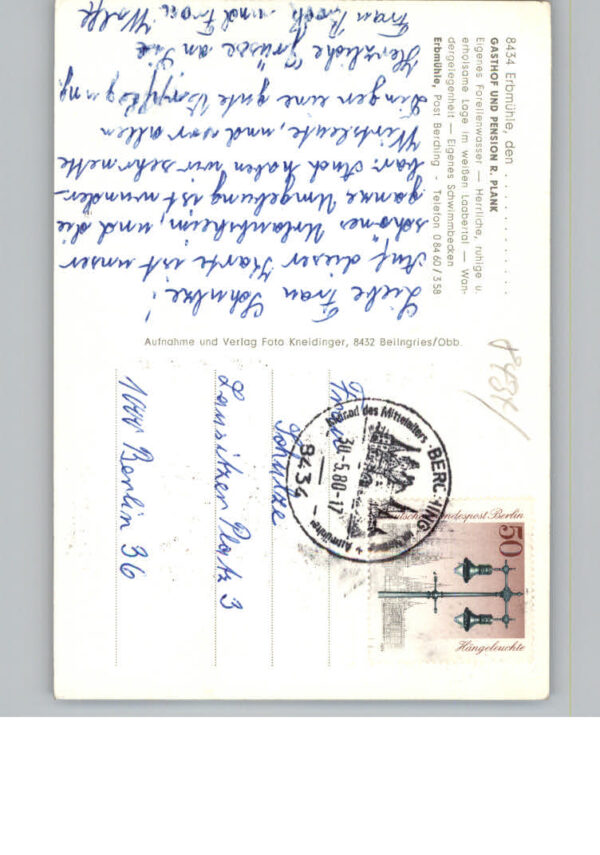 8434 Erbmühle, den . . . . . . . . . . . . . . .
GASTHOF UND PENSION R. PLANK
Eigenes Forellenwasser — Herrliche, ruhige u.
erholsame Lage im weißen Laabertal — Wan-
dergelegenheit — Eigenes Schwimmbecken
Erbmühle, Post Berching - Telefon 08460/358
Liebe Frau Schultze!
Auf dieser Karte ist unser
schönes Urlaubsheim, und die
ganze Umgebung ist wunder-
bar. Auch haben wir sehr nette
Wirtsleute, und vor allen
Dingen eine gute Verpflegung
Herzliche Grüsse an Sie
Frau Koch und Frau Wolfe
Aufnahme und Verlag Foto Kneidinger, 8432 Beilngries/Obb.
8434
Frau
Schultze
Lausitzer Platz 3
1000 Berlin 36
BERCHING
Kleinod des Mittelalters
30.-5.80-17
8434
Deutsche Bundespost Berlin
50
Hängeleuchte